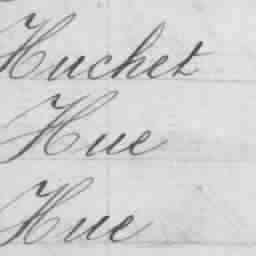 Huchet
Hue
Hue